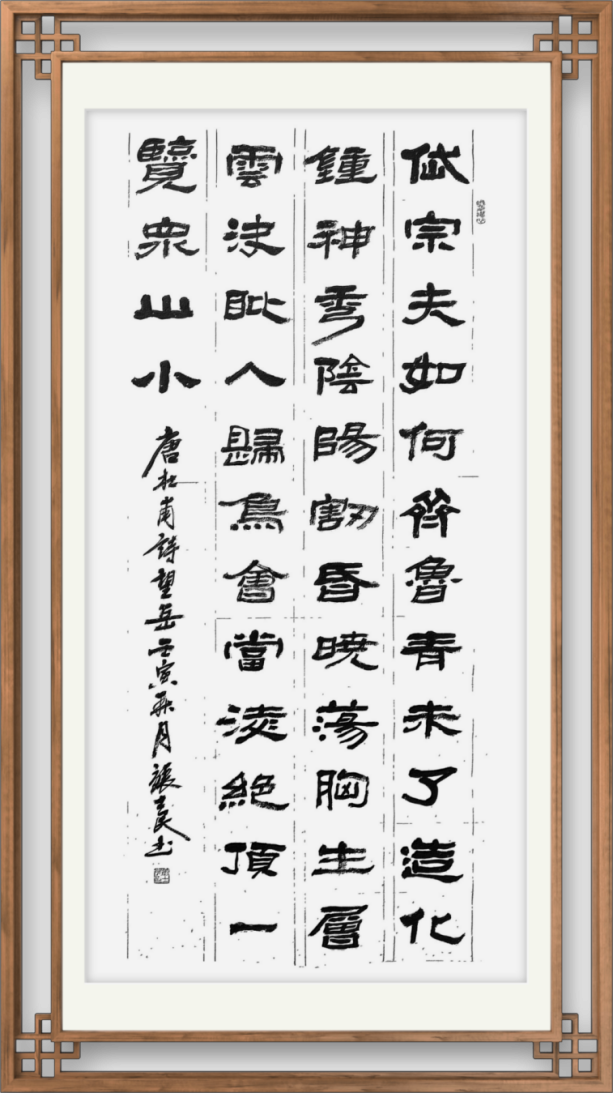 岱宗夫如何齊魯青未了造化
鍾神秀陰陽割昏暁蕩胸生層
雲決眦入歸鳥會當淩絶頂一
覽衆山小
唐杜甫詩望岳壬寅月張民书